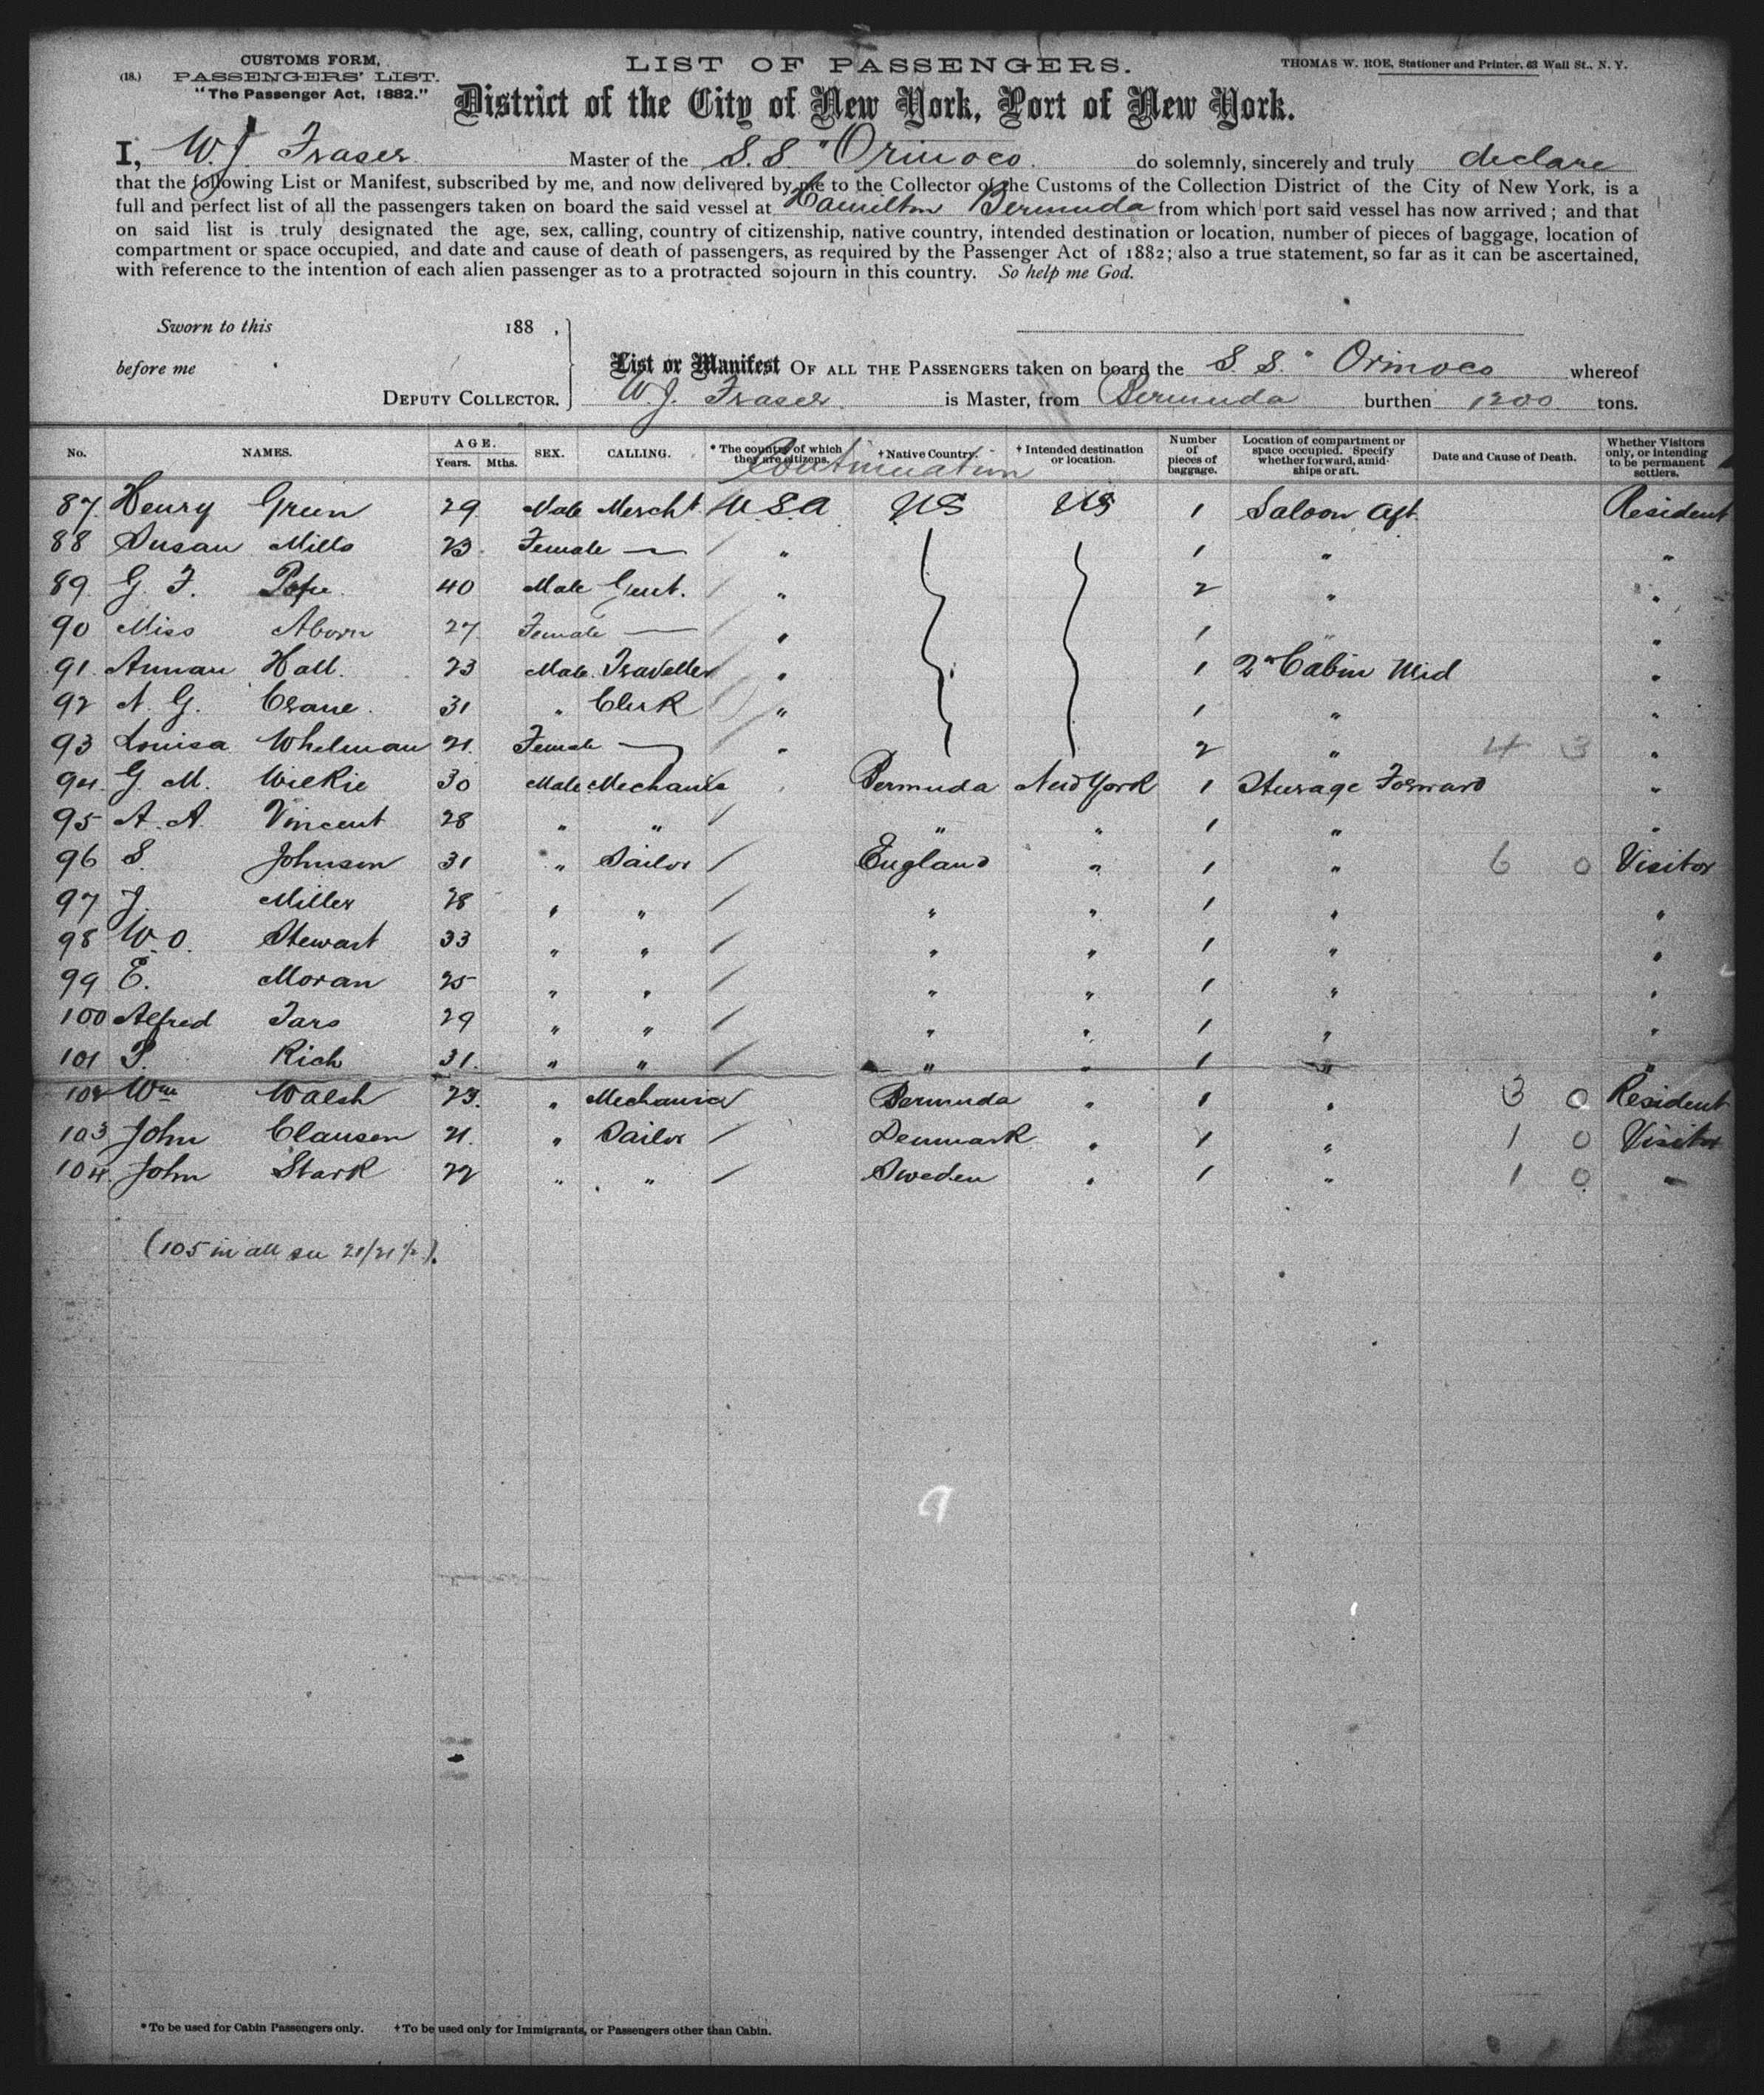 CUSTOMS FORM,
(18.) PASSENGERS' LIST.
"The Passenger Act, 1882."
LIST OF PASSENGERS.
THOMAS W. ROE, Stationer and Printer, 63 Wall St., N. Y.
District of the City of New York, Port of New York.
I, W. J. Fraser Master of the S.S. "Orinoco do solemnly, sincerely and truly declare
that the following List or Manifest, subscribed by me, and now delivered by me to the Collector of the Customs of the Collection District of the City of New York, is a
full and perfect list of all the passengers taken on board the said vessel at Hamilton Bermuda from which port said vessel has now arrived; and that
on said list is truly designated the age, sex, calling, country of citizenship, native country, intended destination or location, number of pieces of baggage, location of
compartment or space occupied, and date and cause of death of passengers, as required by the Passenger Act of 1882; also a true statement, so far as it can be ascertained,
with reference to the intention of each alien passenger as to a protracted sojourn in this country. So help me God.
Sworn to this 188 .
before me
DEPUTY COLLECTOR.
List or Manifest OF ALL THE PASSENGERS taken on board the S.S. " Orinoco whereof
W. J. Fraser is Master, from Bermuda burthen 1200 tons.
No. NAMES. AGE. Years. Mths. SEX. CALLING. * The country of which they are citizens. † Native Country. † Intended destination or location. Number of pieces of baggage. Location of compartment or space occupied. Specify whether forward, amidships or aft. Date and Cause of Death. Whether Visitors only, or intending to be permanent settlers.
Continuation
87 Henry Green 29 Male Mercht. / U.S.A US US 1 Saloon Aft. Resident
88 Susan Mills 23 Female — / " 1 " "
89 G. F. Pope 40 Male Gent. / " 2 " "
90 Miss Aborn 27 Female — / " 1 " "
91 Annan Hall 23 Male Traveller / " 1 2n Cabin Mid "
92 N. G. Crane 31 " Clerk / " 1 " "
93 Louisa Whelman 21 Female — / " 2 " 4 3 "
94 G. M. Wilkie 30 Male Mechanic Bermuda New York 1 Steerage Forward "
95 A. A. Vincent 28 " " / " " 1 " "
96 S. Johnson 31 " Sailor / England " 1 " 6 0 Visitor
97 J. Miller 28 " " / " " 1 " "
98 W. O. Stewart 33 " " / " " 1 " "
99 E. Moran 25 " " / " " 1 " "
100 Alfred Tars 29 " " / " " 1 " "
101 P. Rich 31 " " / " " 1 " "
102 Wm Walsh 23 " Mechanic Bermuda " 1 " 3 0 Resident
103 John Clausen 21 " Sailor / Denmark " 1 " 1 0 Visitor
104 John Stark 22 " " / Sweden " 1 " 1 0 "
(105 in all see 21/21 ½).
* To be used for Cabin Passengers only. † To be used only for Immigrants, or Passengers other than Cabin.